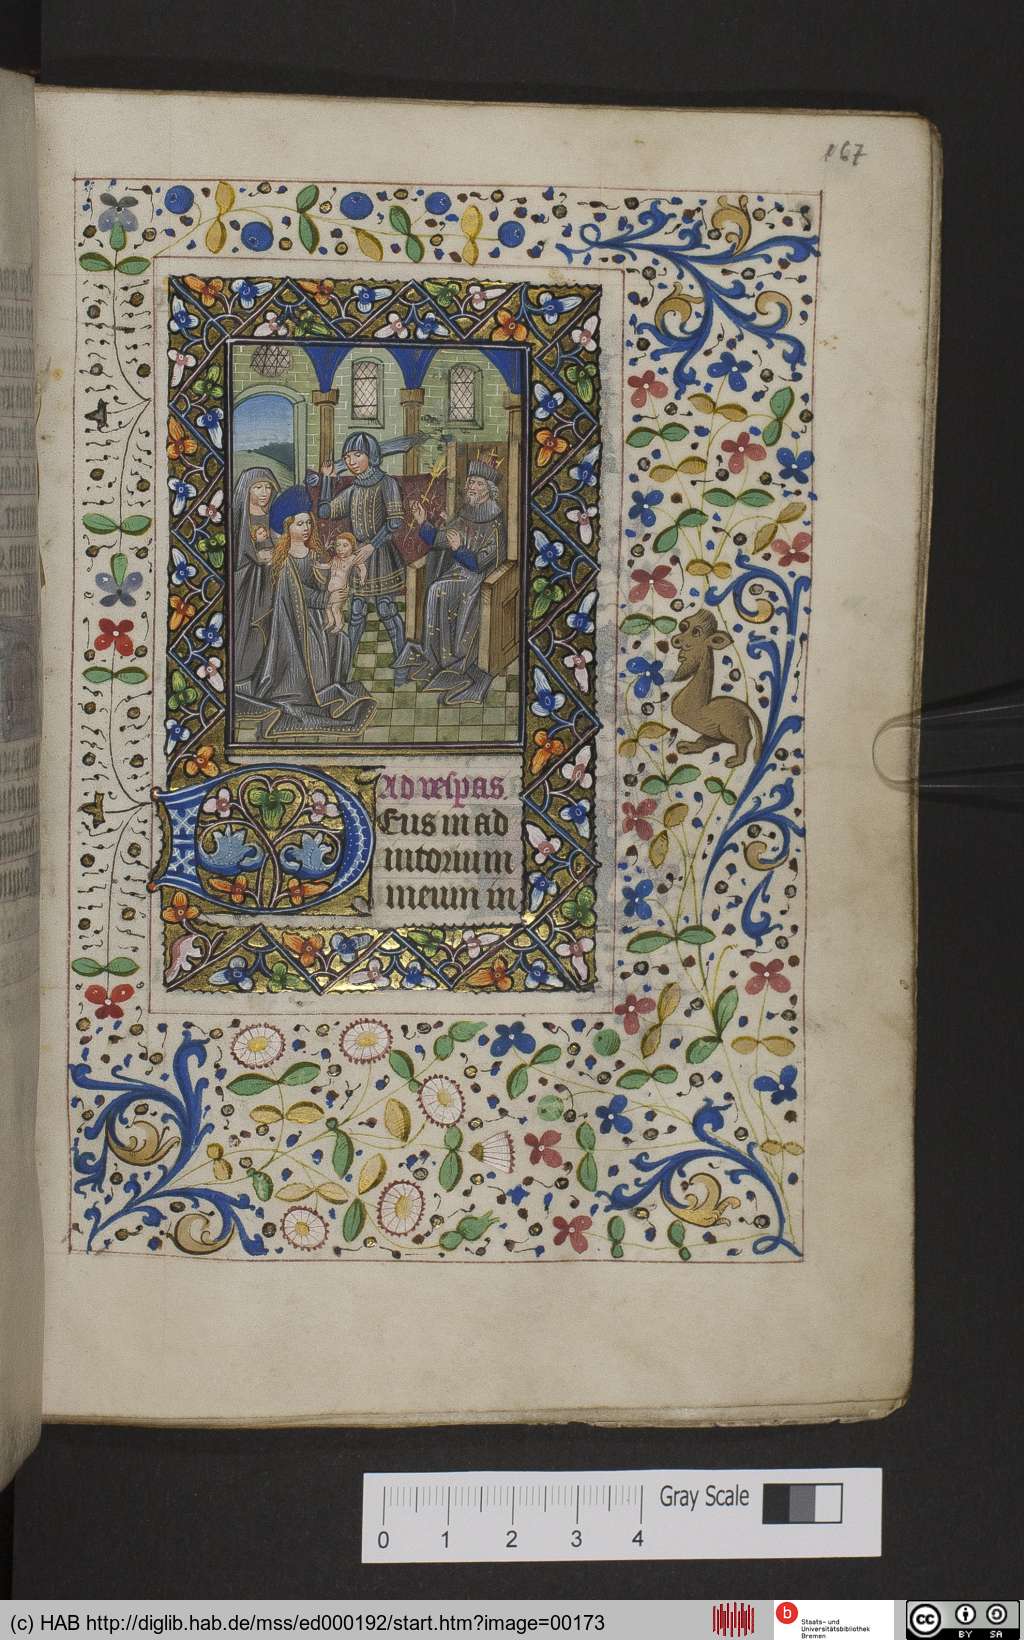 167
Ad vespas
Eus in ad
iutorium
meum in
Gray Scale
0 1 2 3 4
(c) HAB http://diglib.hab.de/mss/ed000192/start.htm?image=00173
b
Staats- und
Universitätsbibliothek
Bremen
cc
BY SA